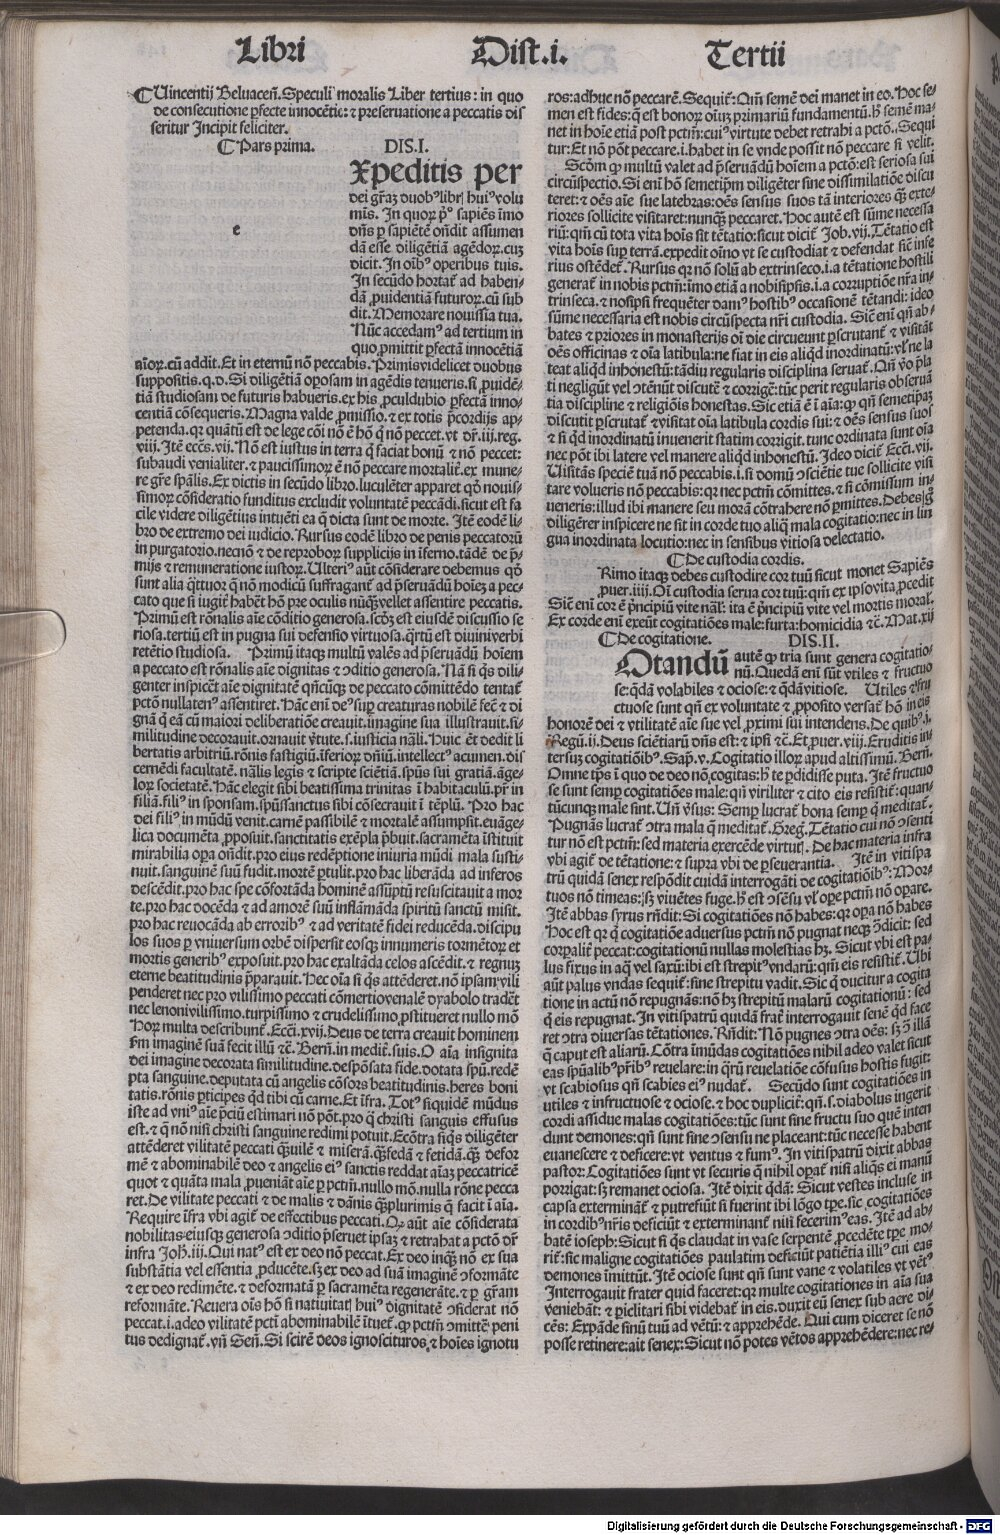 Libri Dist.i. Tertii
¶Uincentij Beluaceñ. Speculi moralis Liber tertius: in quo
de consecutione ꝑfecte innocētie: ⁊ preseruatione a peccatis dis
seritur Incipit feliciter.
¶Pars prima. DIS.I.
e
Xpeditis per
dei gr̄aꝫ duobꝰ libr̄ huiꝰ volu
mīs. In quoꝝ pº sapiēs īmo
dn̄s ꝑ sapiētē on̄dit assumen
dā esse diligētiā agēdoꝝ.cuꝫ
dicit. In oībꝰ operibus tuis.
In secūdo hortat᷑ ad haben⸗
dā ꝓuidentiā futuroꝝ.cū sub
dit. Memorare nouissīa tua.
Nūc accedamꝰ ad tertium in
quo ꝓmittit ꝑfectā innocētiā
aīoꝝ.cū addit. Et in eternū nō peccabis. Primis videlicet duobus
suppositis.q.d. Si diligētiā oꝑosam in agēdis tenueris.si ꝓuidē⸗
tiā studiosam de futuris habueris.ex his ꝓculdubio ꝑfectā inno⸗
centiā cōsequeris. Magna valde ꝓmissio.⁊ ex totis p̄cordijs ap⸗
petenda.qꝛ quātū est de lege cōi nō ē hō q̇ nō peccet.vt dr̄.iii.reg.
viii. Itē ecc̄s.vii. Nō est iustus in terra q̇ faciat bonū ⁊ nō peccet:
subaudi venialiter.⁊ paucissimoꝝ ē nō peccare mortalit᷑.ex mune⸗
re gr̄e sp̄alis. Ex dictis in secūdo libro.luculēter apparet qº nouis⸗
simoꝝ cōsideratio funditus excludit voluntatē peccādi.sicut est fa
cile videre diligētius intuēti ea q̄ dicta sunt de morte. Itē eodē li⸗
bro de extremo dei iudicio. Rursus eodē libro de penis peccatorū
in purgatorio.necnō ⁊ de reproboꝝ supplicijs in īferno.tādē de p̄⸗
mijs ⁊ remuneratione iustoꝝ. Ulteriꝰ aūt cōsiderare debemus qº
sunt alia q̇ttuor q̄ nō modicū suffragant᷑ ad p̄seruādū hoīeꝫ a pec⸗
cato que si iugit᷑ habēt hō pre oculis nūq̄ꝫ vellet assentire peccatis.
Primū est rōnalis aīe cōditio generosa.scdꝫ est eiusdē discussio se
riosa.tertiū est in pugna sui defensio virtuosa.q̇rtū est diuini verbi
retētio studiosa. Primū itaqꝫ multū valēs ad p̄seruādū hoīem
a peccato est rōnalis aīe dignitas ⁊ ↄditio generosa. Nā si q̇s dili⸗
genter inspicēt aīe dignitatē qn̄cūqꝫ de peccato cōmittēdo tentat᷑
pctō nullatenꝰ assentiret. Hāc eni deꝰ suꝑ creaturas nobilē fec̄ ⁊ di
gnā q̄ eā cū maiori deliberatiōe creauit.imagine sua illustrauit.si⸗
militudine decorauit.ornauit v̄tute.s.iusticia nāli. Huic et dedit li
bertatis arbitriū.rōnis fastigiū.īferioꝝ dn̄iū.intellectꝰ acumen.dis
cernēdi facultatē.nālis legis ⁊ scripte sciētiā.spūs sui gratiā.āge⸗
loꝝ societatē. Hāc elegit sibi beatissima trinitas ī habitaculū.pr̄ in
filiā.filiꝰ in sponsam.spūssanctus sibi cōsecrauit ī tēplū. Pro hac
dei filiꝰ in mūdū venit.carnē passibilē ⁊ mortalē assumpsit.euāge⸗
lica documēta ꝓposuit.sanctitatis exēpla p̄buit.sacramēta īstituit
mirabilia oꝑa on̄dit.pro eius redēptione iniuria mūdi mala susti⸗
nuit.sanguinē suū fudit.mortē ꝑtulit.pro hac liberāda ad inferos
descēdit.pro hac spe cōfortāda hominē assūptū resuscitauit a mor
te.pro hac docēda ⁊ ad amorē suū inflāmāda spiritū sanctū misit.
pro hac reuocāda ab erroribꝰ ⁊ ad veritatē fidei reducēda.discipu
los suos ꝑ vniuersum orbē dispersit eosqꝫ innumeris tormētoꝝ et
mortis generibꝰ exposuit.pro hac exaltāda celos ascēdit.⁊ regnuꝫ
eterne beatitudinis p̄parauit. Hec oīa si q̇s attēderet.nō ipsam vili
penderet nec pro vilissimo peccati cōmertio venalē dyabolo tradēt
nec lenoni vilissimo.turpissimo ⁊ crudelissimo ꝓstitueret nullo mō
Hoꝝ multa describunt᷑. Ecci.xvii. Deus de terra creauit hominem
sm̄ imaginē suā fecit illū ⁊c̄. Bern̄.in medit̄.suis. O aīa insignita
dei imagine decorata similitudine.despōsata fide.dotata spū.redē
pta sanguine.deputata cū angelis cōsors beatitudinis.heres boni
tatis.rōnis ꝑticipes qd̄ tibi cū carne. Et īfra. Totꝰ siquidē mūdus
iste ad vniꝰ aīe p̄ciū estimari nō pōt.pro q̄ christi sanguis effusus
est.⁊ q̄ nō nisi christi sanguine redimi potuit. Ecōtra siq̇s diligēter
attēderet vilitatē peccati q̄ꝫ uilē ⁊ miserā.q̄ꝫ fedā ⁊ fetidā.q̄ꝫ defor
mē ⁊ abominabilē deo ⁊ angelis eiꝰ sanctis reddat aīaꝫ peccatricē
quot ⁊ quāta mala ꝓueniāt aīe ꝑ pctm̄.nullo mō.nulla rōne pecca
ret. De vilitate peccati ⁊ de malis ⁊ dānis q̄ꝫ plurimis q̄ facit ī aīa.
Require īfra vbi agit᷑ de effectibus peccati. Qꝫ aūt aīe cōsiderata
nobilitas eiusqꝫ generosa ↄditio p̄seruet ipsaꝫ ⁊ retrahat a pctō dr̄
infra Joh̄.iii. Qui natꝰ est ex deo nō peccat. Ex deo inqꝫ nō ex sua
substātia vel essentia ꝓducēte.sꝫ ex deo ad suā imaginē ↄformāte
⁊ ex deo redimēte.⁊ deformatā ꝑ sacramēta regenerāte.⁊ ꝑ gr̄am
reformāte. Reuera oīs hō si natiuitat᷑ huiꝰ dignitatē ↄsiderat nō
peccat.i.adeo vilitatē pcti abominabilē ītuet᷑.qꝫ pctm̄ ↄmittē peni
tus dedignat᷑.vn̄ Sen̄. Si scirē deos ignoscituros.⁊ hoīes ignotu
ros:adhuc nō peccarē. Sequit᷑: Qm̄ semē dei manet in eo. Hoc se⸗
men est fides:q̄ est bonoꝝ oīuꝫ primariū fundamentū.h̄ semē ma⸗
net in hoīe etiā post pctm̄:cuiꝰ virtute debet retrahi a pctō.. Sequi
tur: Et nō pōt peccare.i.habet in se vnde possit nō peccare si velit.
Scdm qꝫ multū valet ad p̄seruādū hoīem a pctō:est seriosa sui
circūspectio. Si eni hō semetip̄m diligēter sine dissimilatiōe discu
teret:⁊ oēs aīe sue latebras:oēs sensus suos tā interiores q̄ꝫ exte⸗
riores sollicite visitaret:nunqꝫ peccaret. Hoc autē est sūme necessa
riū:qm̄ cū tota vita hoīs sit tētatio:sicut dicit᷑ Job.vij. Tētatio est
vita hoīs suꝑ terrā.expedit oīno vt se custodiat ⁊ defendat sic̄ infe
rius ostēdet᷑. Rursus qꝛ nō solū ab extrinseco.i.a tētatione hostili
generat᷑ in nobis pctm̄:īmo etiā a nobisipsis.i.a corruptiōe nr̄a in⸗
trinseca.⁊ nosipsi frequēter damꝰ hostibꝰ occasionē tētandi:ideo
sūme necessaria est nobis circūspecta nr̄i custodia. Sic̄ eni qn̄ ab⸗
bates ⁊ priores in monasterijs oī die circueunt ꝑscrutant᷑ ⁊ visitāt
oēs officinas ⁊ oīa latibula:ne fiat in eis aliqd inordinatū:vł ne la
teat aliqd inhonestū:tādiu regularis disciplina seruat᷑. Qn̄ vº p̄la
ti negligūt vel ↄtēnūt discutē ⁊ corrigē:tūc perit regularis obserua
tia discipline ⁊ religiōis honestas. Sic etiā ē ī aīa:qꝫ qn̄ semetip̄aꝫ
discutit ꝑscrutat᷑ ⁊ visitat oīa latibula cordis sui:⁊ oēs sensus suos
⁊ si qd inordinatū inuenerit statim corrigit.tunc ordinata sunt oīa
nec pōt ibi latere vel manere aliqd inhonestū. Ideo dicit᷑ Ecci.vii.
Uisitās speciē tuā nō peccabis.i.si domū ↄsciētie tue sollicite visi
tare volueris nō peccabis:qꝛ nec pctm̄ cōmittes.⁊ si cōmissum in⸗
ueneris:illud ibi manere seu morā cōtrahere nō ꝑmittes. Debes g̊
diligēter inspicere ne sit in corde tuo aliq̄ mala cogitatio:nec in lin
gua inordinata locutio:nec in sensibus vitiosa delectatio.
¶De custodia cordis.
Rimo itaqꝫ debes custodire cor tuū sicut monet Sapiēs
ꝓuer.iiii. Oī custodia serua cor tuū:qm̄ ex ipso vita ꝓcedit
Sic̄ eni cor ē p̄ncipiū vite nāl:ita ē p̄ncipiū vite vel mortis moral.
Ex corde eni exeūt cogitatiōes male:furta:homicidia ⁊c̄. Mat.xij
¶De cogitatione. DIS.II.
Otandū autē qꝫ tria sunt genera cogitatio⸗
nū. Quedā eni sūt vtiles ⁊ fructuo
se:q̄dā volabiles ⁊ ociose:⁊ q̄dā vitiose. Utiles ⁊ fru
ctuose sunt qn̄ ex voluntate ⁊ ꝓposito versat᷑ hō in eis
honorē dei ⁊ vtilitatē aīe sue vel ꝓximi sui intendens. De quibꝰ.i.
Regū.ii. Deus sciētiarū dn̄s est:⁊ ip̄i ⁊c̄. Et ꝓuer.viii. Eruditis in⸗
tersuꝫ cogitatiōibꝰ. Sap̄.v. Cogitatio illoꝝ apud altissimū. Bern̄.
Omne tp̄s ī quo de deo nō cogitas:h̄ te ꝑdidisse puta. Itē fructuo
se sunt semꝑ cogitatiōes male:qn̄ viriliter ⁊ cito eis resistit᷑:quan⸗
tūcunqꝫ male sint. Un̄ v̄sus: Semꝑ lucrat᷑ bona semꝑ q̇ meditat᷑.
Pugnās lucrat᷑ ↄtra mala q̇ meditat᷑. Greg. Tētatio cui nō ↄsenti
tur nō est pctm̄:sed materia exercēde virtut᷑. De hac materia infra
vbi agit᷑ de tētatione:⁊ supra vbi de ꝑseuerantia. Itē in vitispa
trū quidā senex respōdit cuidā interrogāti de cogitatiōibꝰ: Mor⸗
tuos nō timeas:sꝫ viuētes fuge.h̄ est ↄsēsū vł oꝑe pctm̄ nō oꝑare.
Itē abbas syrus rn̄dit: Si cogitatiōes nō habes:qꝛ oꝑa nō habes
Hoc est qꝛ q̇ cogitatiōe aduersus pctm̄ nō pugnat neqꝫ ↄdicit:sed
corꝑalit᷑ peccat:cogitationū nullas molestias hꝫ. Sicut vbi est pa⸗
lus fixus in aq̄ vel saxū:ibi est strepitꝰ vndarū:qm̄ eis resistit᷑. Ubi
aūt palus vndas sequit᷑:sine strepitu vadit. Sic q̇ ducitur a cogita
tione in actū nō repugnās:nō hꝫ strepitū malarū cogitationū:sed
q̇ eis repugnat. In vitispatrū quidā frat᷑ interrogauit senē qd face
ret ↄtra diuersas tētationes. Rn̄dit: Nō pugnes ↄtra oēs:sꝫ ↄ illā
q̄ caput est aliarū. Cōtra īmūdas cogitatiōes nihil adeo valet sicut
eas sp̄ualibꝰ pr̄ibꝰ reuelare:in q̇rū reuelatiōe cōfusus hostis fugit:
vt scabiosus qn̄ scabies eiꝰ nudat᷑. Secūdo sunt cogitatiōes in
utiles ⁊ infructuose ⁊ ociose.⁊ hoc duplicit᷑:qn̄.s.diabolus ingerit
cordi assidue malas cogitatiōes:tūc sunt sine fructu suo quē inten
dunt demones:qn̄ sunt sine ↄsensu ne placeant:tūc necesse habent
euanescere ⁊ deficere:vt ventus ⁊ fumꝰ. In vitispatrū dixit abbas
pastor: Cogitatiōes sunt vt securis q̄ nihil oꝑat᷑ nisi aliq̇s ei manū
porrigat:sꝫ remanet ociosa. Itē dixit q̇dā: Sicut vestes incluse in
capsa exterminant᷑ ⁊ putrefiūt si fuerint ibi lōgo tꝑe.sic cogitatiōes
in cordibꝰ nr̄is deficiūt ⁊ exterminant᷑ nisi fecerimꝰ eas. Itē ad ab⸗
batē ioseph: Sicut si q̇s claudat in vase serpentē ꝓcedēte tꝑe mo⸗
rit᷑:sic maligne cogitatiōes paulatim deficiūt patiētia illiꝰ cui eas
demones īmittūt. Itē ociose sunt qn̄ sunt vane ⁊ volatiles vt vēt᷑
Interrogauit frater quid faceret:qꝛ multe cogitationes in aīa sua
veniebāt:⁊ ꝑiclitari sibi videbat᷑ in eis.duxit eū senex sub aere di⸗
cēs: Expāde sinū tuū ad vētū:⁊ apprehēde. Qui cum diceret se nō
posse retinere:ait senex: Sicut nō potes vētos apprehēdere:nec re⸗
Digitalisierung gefördert durch die Deutsche Forschungsgemeinschaft - DFG